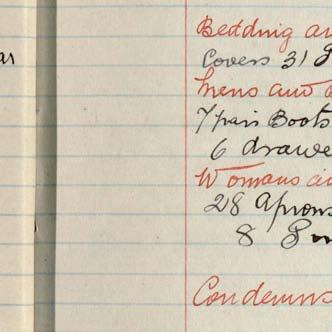 Bedding an
ar
Covers 31
Mens and
7 pair Boots
6 drawe
Womans
28 Aprons
8
Condemns